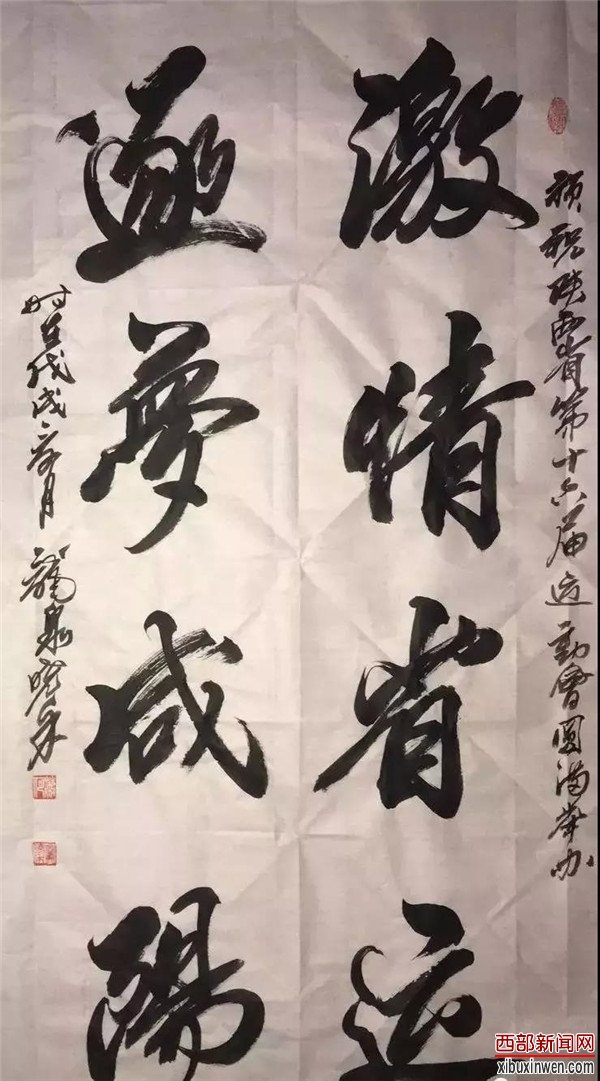 预祝陕西省第十六届运动会圆满举办
激情省运
逐梦咸阳
时在戊戌六月
龙泉
西部新闻网
xibuxinwen.com